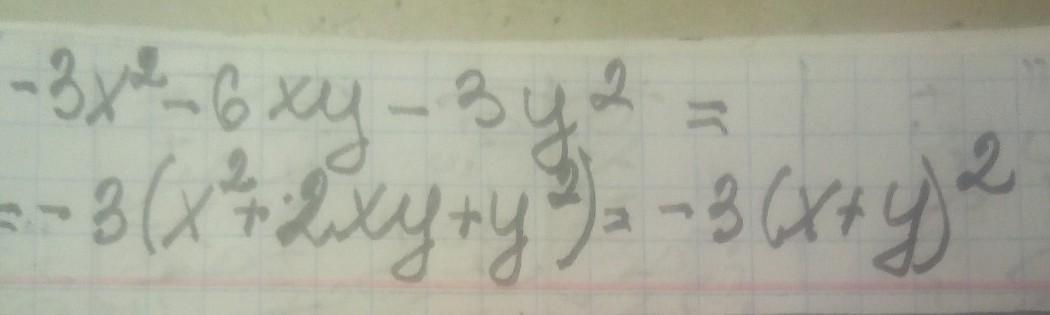 -3x² - 6xy - 3y² =
= -3(x² + 2xy + y²) = -3(x + y)²